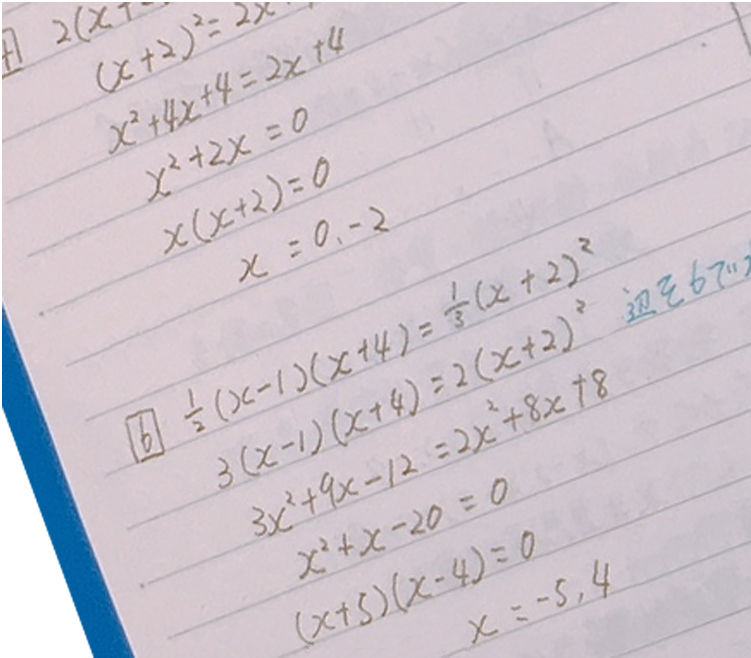 2(x+
(x+2)²=2x
x²+4x+4=2x+4
x²+2x=0
x(x+2)=0
x=0,-2
6 1/2(x-1)(x+4)=1/3(x+2)² 辺を6で
3(x-1)(x+4)=2(x+2)²
3x²+9x-12=2x²+8x+8
x²+x-20=0
(x+5)(x-4)=0
x=-5,4